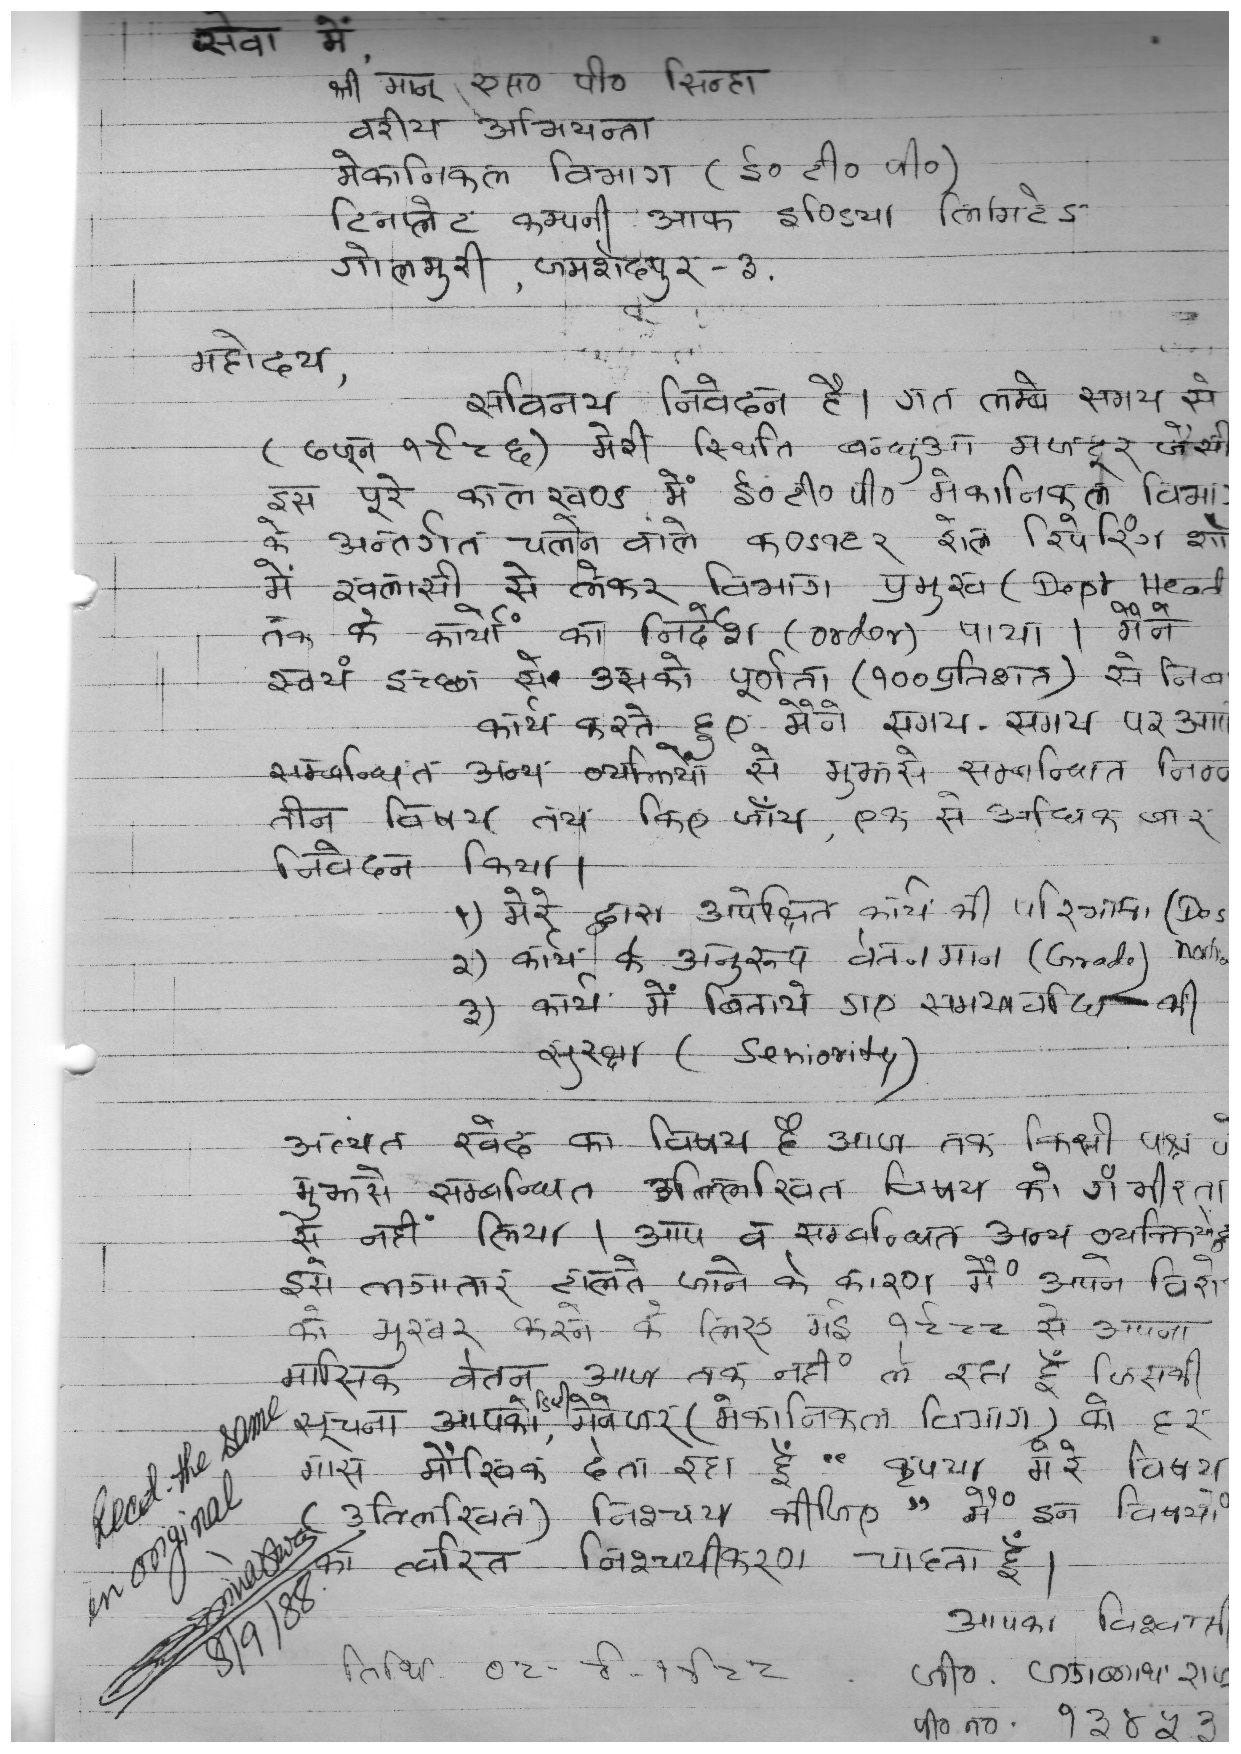 सेवा में,
श्री मान् एस० पी० सिन्हा
वरीय अभियन्ता
मेकानिकल विभाग (ई० टी० पी०)
टिनप्लेट कम्पनी आफ इण्डिया लिमिटेड
गोलमुरी, जमशेदपुर - ३.
महोदय,
सविनय निवेदन है। गत लम्बे समय से
(७जून १९८६) मेरी स्थिति बन्धुआ मजदूर जैसी
इस पूरे कालखण्ड में ई० टी० पी० मेकानिकल
के अन्तर्गत चलने वाले कण्डक्टर रोल रिपेरिंग
में खलासी से लेकर विभाग प्रमुख (Dept Head
तक के कार्यों का निर्देश (order) पाया। मैंने
स्वयं इच्छा से उसको पूर्णता (१००प्रतिशत) से
कार्य करते हुए मैंने समय-समय पर
सम्बन्धित अन्य व्यक्तियों से मुझसे सम्बन्धित
तीन विषय तय किए जाँय, एक से अधिक बार
निवेदन किया।
१) मेरे द्वारा अपेक्षित कार्य की
२) कार्य के अनुरूप वेतनमान (Grade)
३) कार्य में बिताये गए समयावधि की
सुरक्षा (Seniority)
अत्यंत खेद का विषय है आज तक किसी पक्ष
मुझसे सम्बन्धित उल्लिखित विषय को गँभीरता
से नहीं लिया। आप व सम्बन्धित अन्य
इसे लगातार टालते जाने के कारण मैं अपने
को मुखर करने के लिए मई १९८८ से अपना
मासिक वेतन आज तक नहीं ले रहा हूँ जिसकी
सूचना आपको, डिप्टी मैनेजर (मेकानिकल विभाग) को हर
मास मौखिक देता रहा हूँ "कृपया मेरे विषय
(उल्लिखित) निश्चय कीजिए" मैं इन विषयों
का त्वरित निश्चयीकरण चाहता हूँ।
Recd. the same
in original
8/9/88.
आपका
तिथि ०८-९-१९८८
जी०. जगन्नाथ
पी० नं०. १२४५३